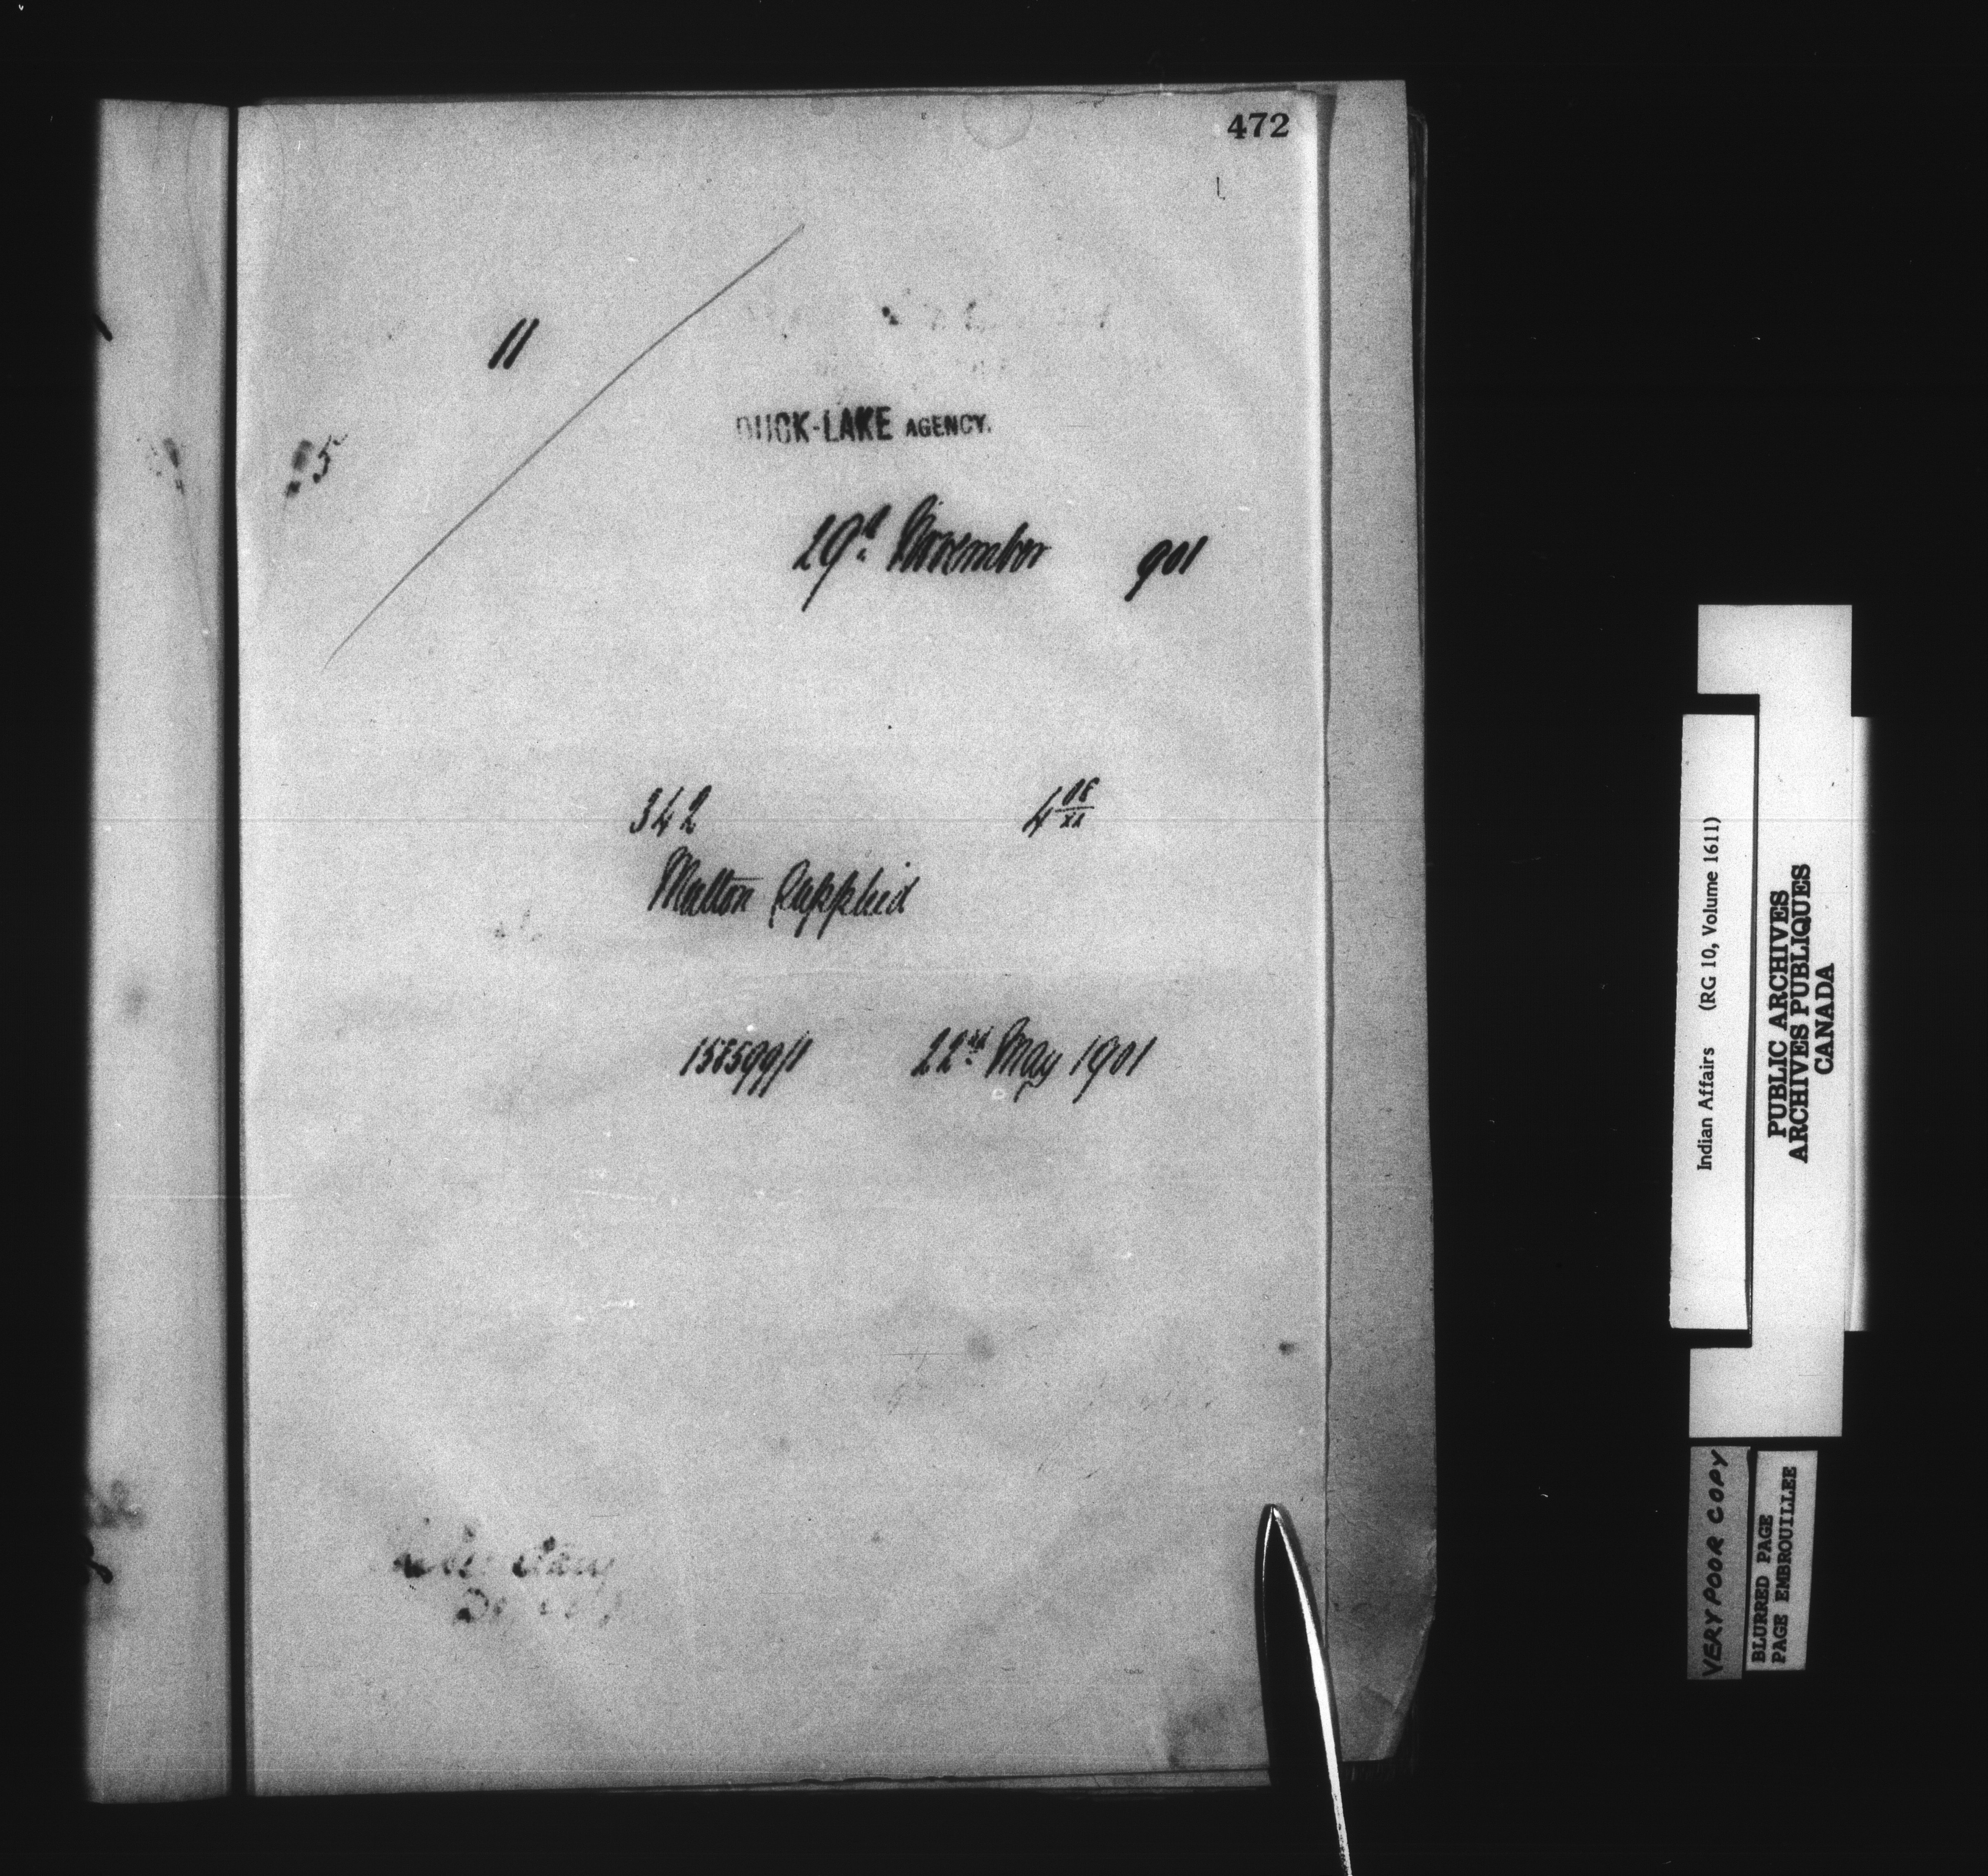 472
11
DUCK-LAKE AGENCY.
5
29th November 901
342 4 08/xx
Mutton Supplied
158599/1 22nd May 1901
Indian Affairs (RG 10, Volume 1611)
PUBLIC ARCHIVES
ARCHIVES PUBLIQUES
CANADA
VERY POOR COPY
BLURRED PAGE
PAGE EMBROUILLEE